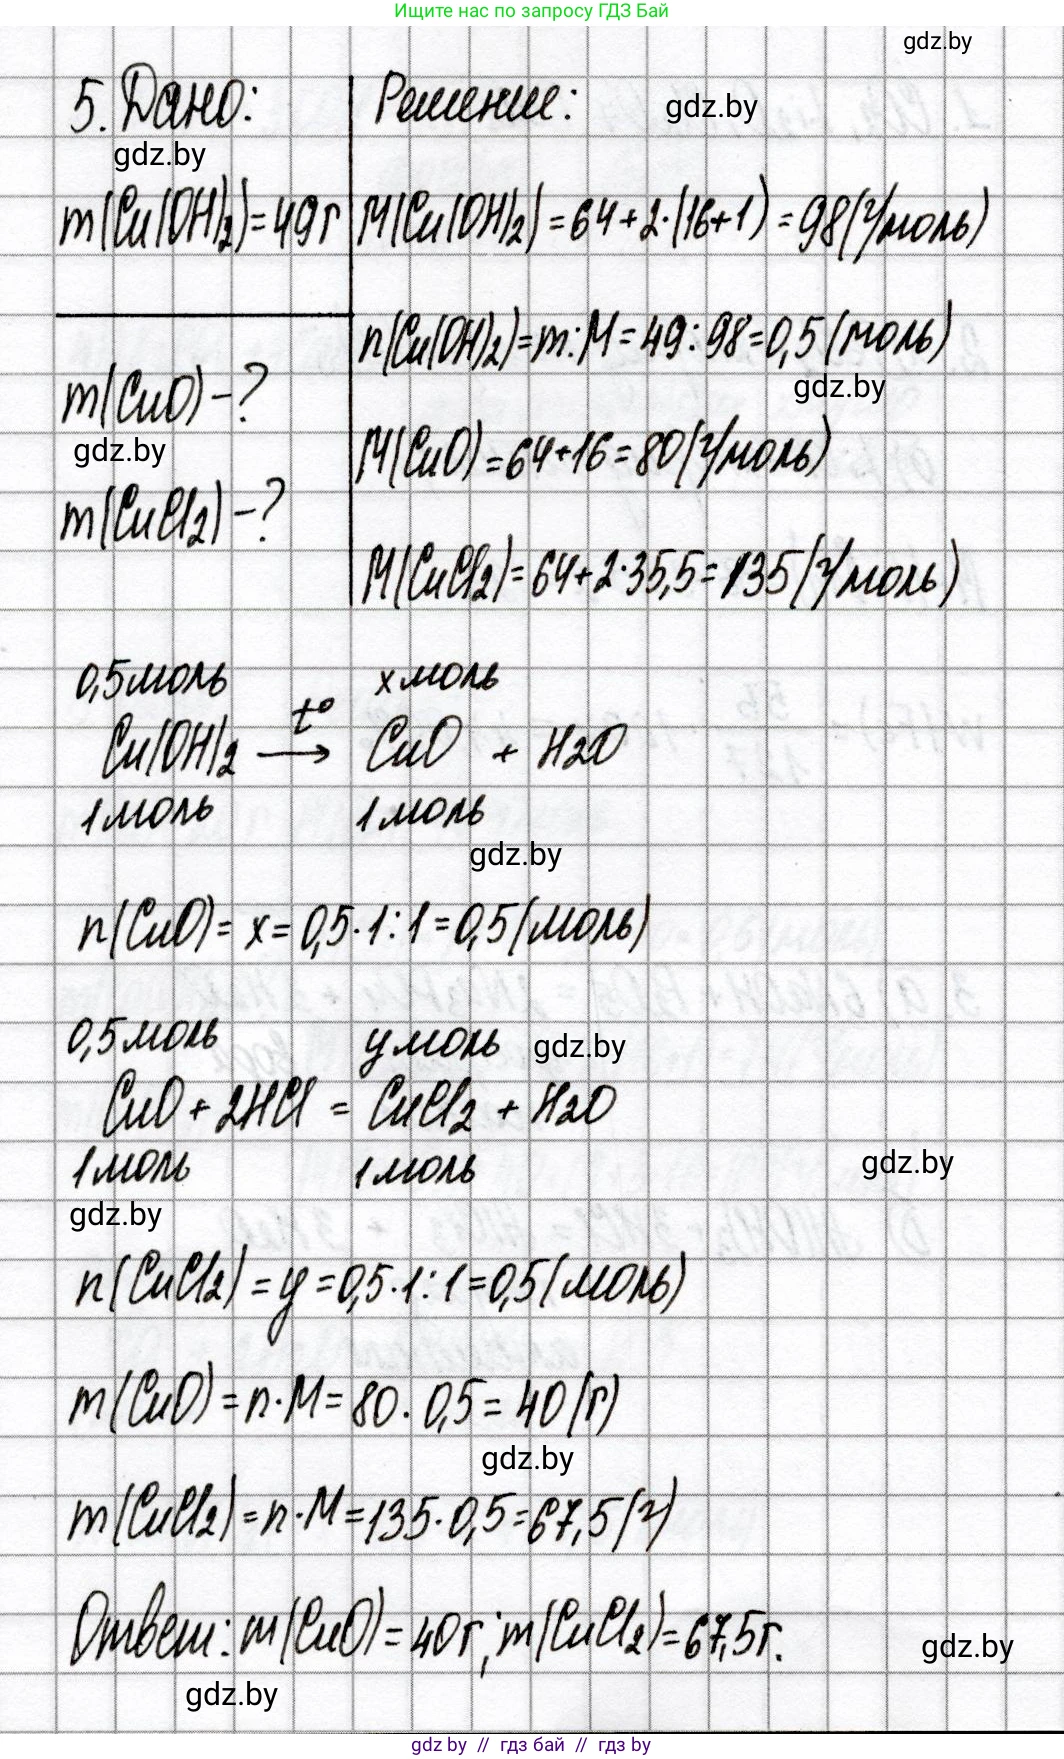 Ищите нас по запросу ГДЗ Бай
gdz.by
5. Дано:
Решение:
gdz.by
gdz.by
m(Cu(OH)2)=49г
M(Cu(OH)2)=64+2·(16+1)=98(г/моль)
n(Cu(OH)2)=m:M=49:98=0,5(моль)
gdz.by
m(CuO)-?
gdz.by
M(CuO)=64+16=80(г/моль)
m(CuCl2)-?
M(CuCl2)=64+2·35,5=135(г/моль)
0,5моль xмоль
Cu(OH)2 t° → CuO + H2O
1моль 1моль
gdz.by
n(CuO)=x=0,5·1:1=0,5(моль)
0,5моль yмоль
gdz.by
CuO+2HCl=CuCl2+H2O
1моль 1моль
gdz.by
gdz.by
n(CuCl2)=y=0,5·1:1=0,5(моль)
m(CuO)=n·M=80·0,5=40(г)
gdz.by
m(CuCl2)=n·M=135·0,5=67,5(г)
Ответ: m(CuO)=40г; m(CuCl2)=67,5г.
gdz.by
gdz.by
gdz.by // гдз бай // gdz.by